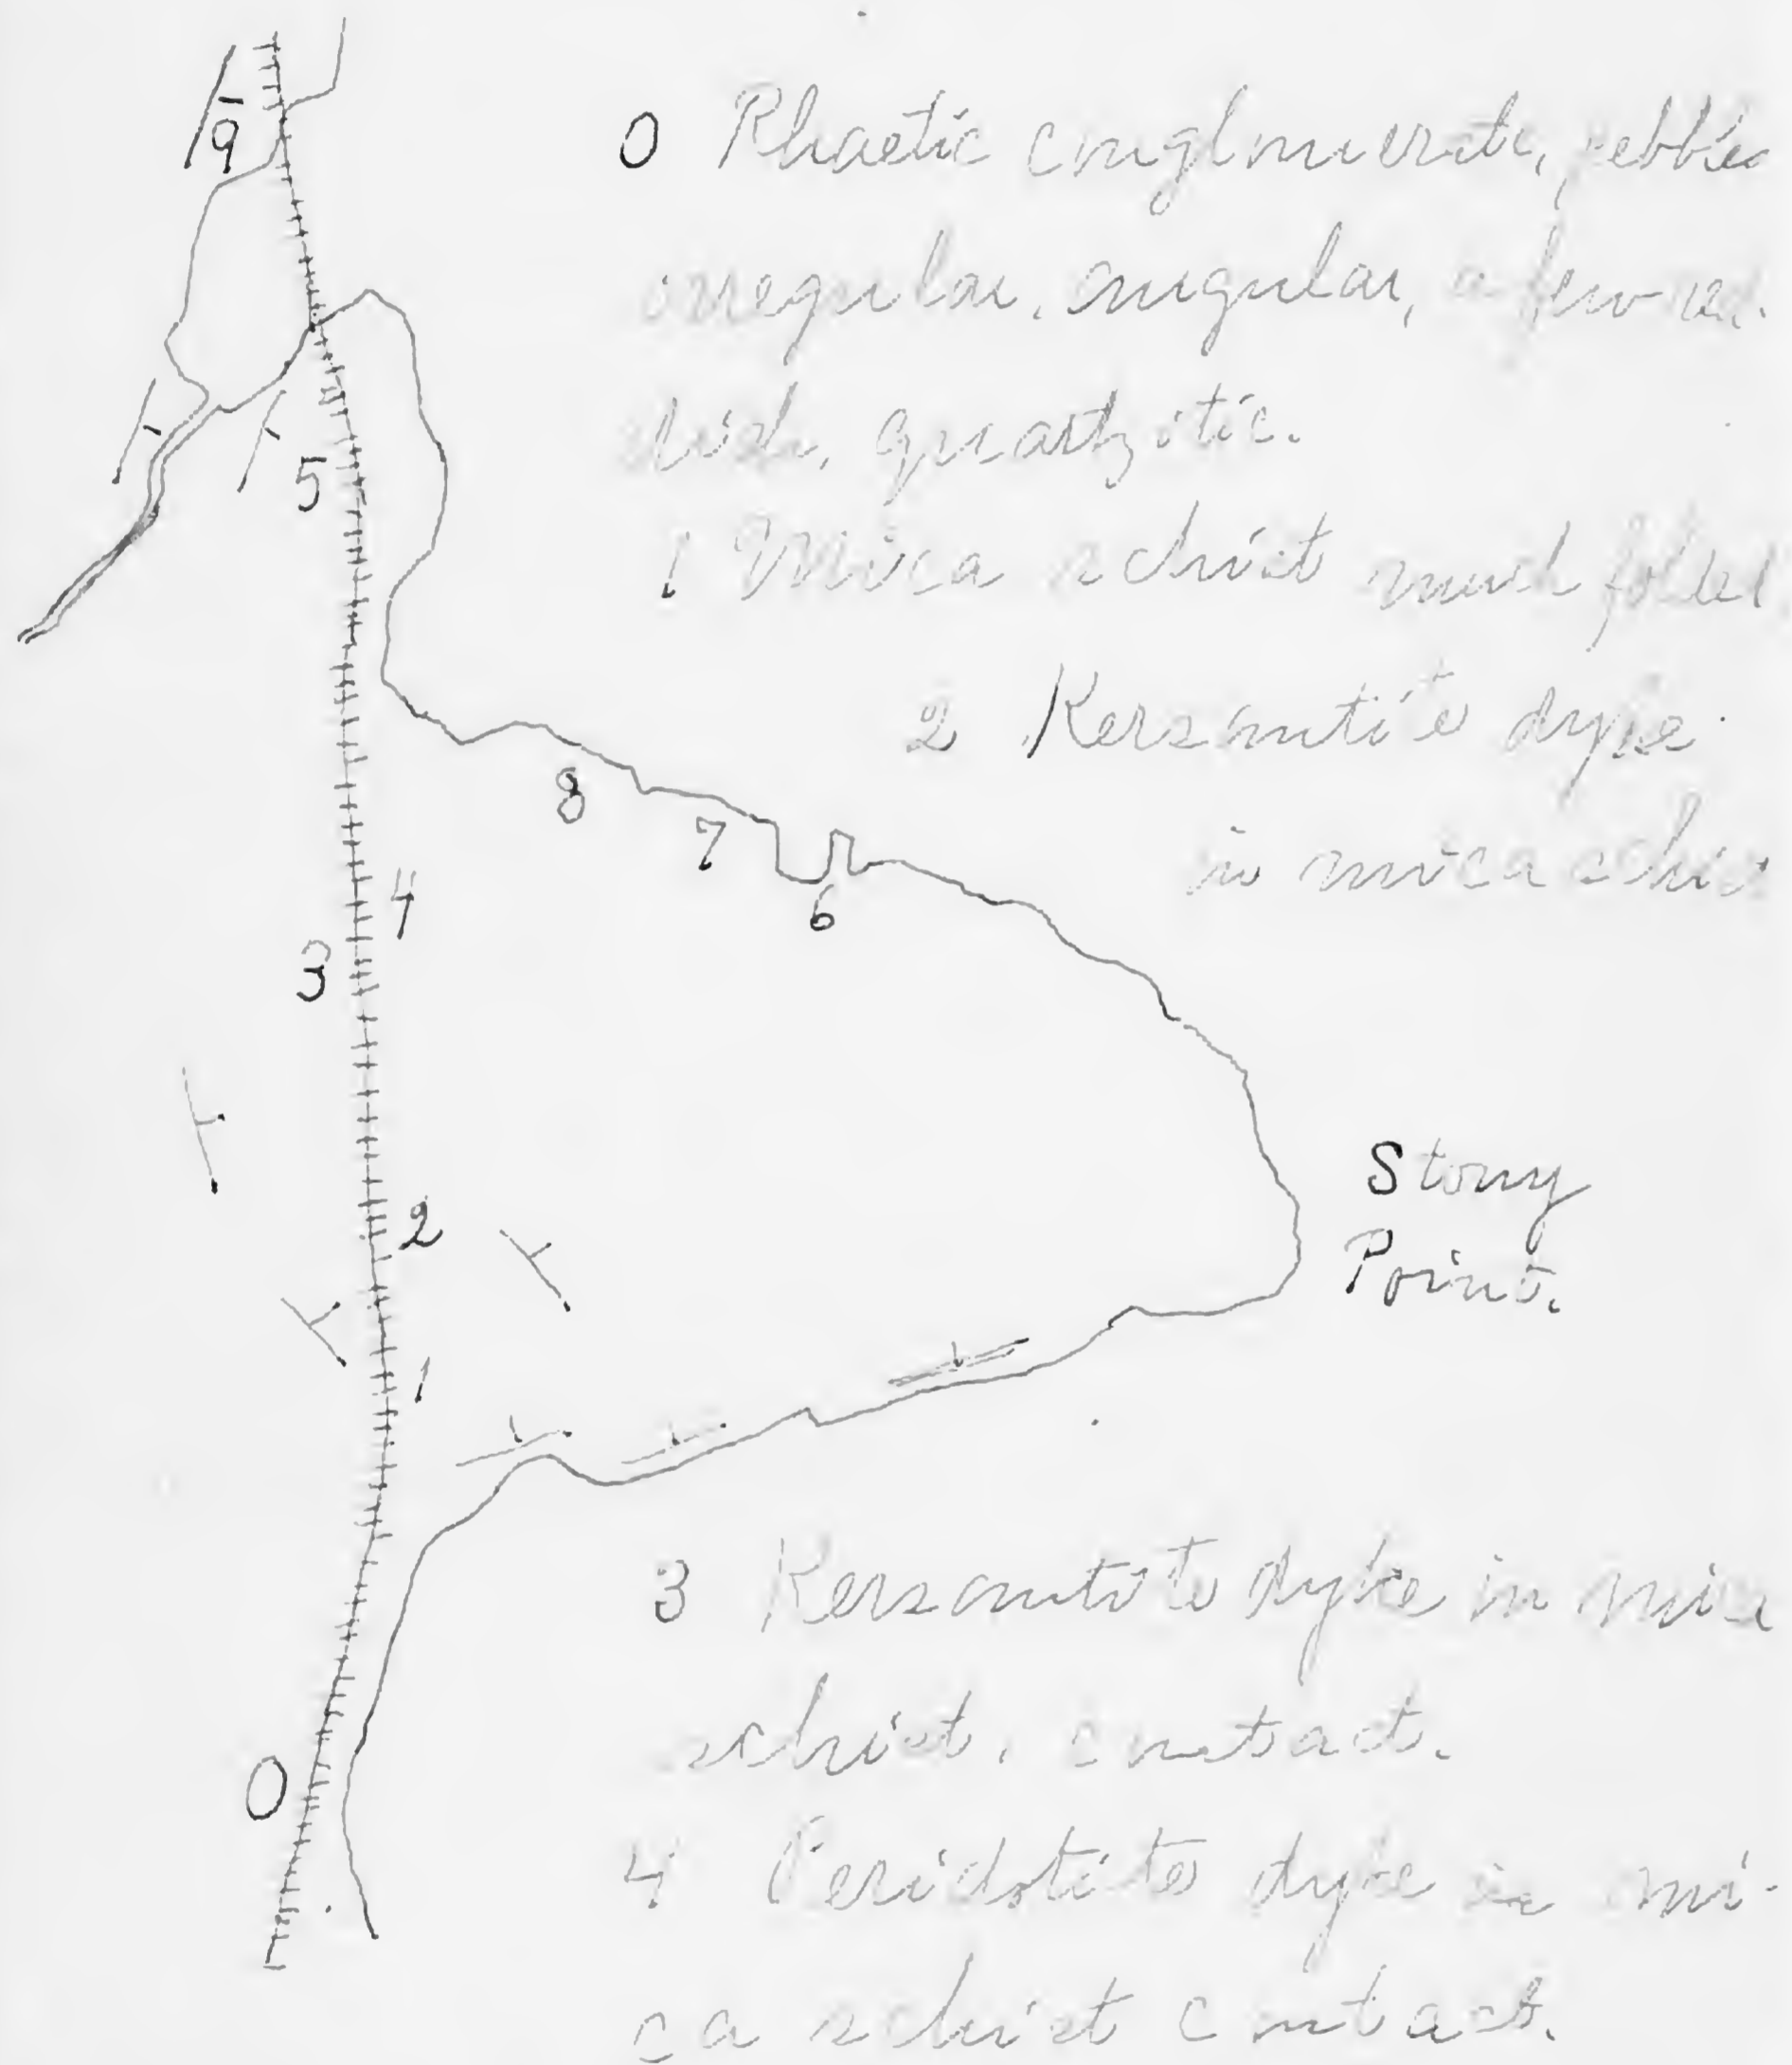 9
0 Rhaetic conglomerate, pebbles
irregular, angular, a few red-
dish, quartzitic.
5
1 Mica schist much folded
2 Kersantite dyke
in mica schist
8
7
6
4
3
2
Stony
Point.
1
3 Kersantite dyke in mica
schist, contact.
0
4 Peridotite dyke in mi-
ca schist contact.